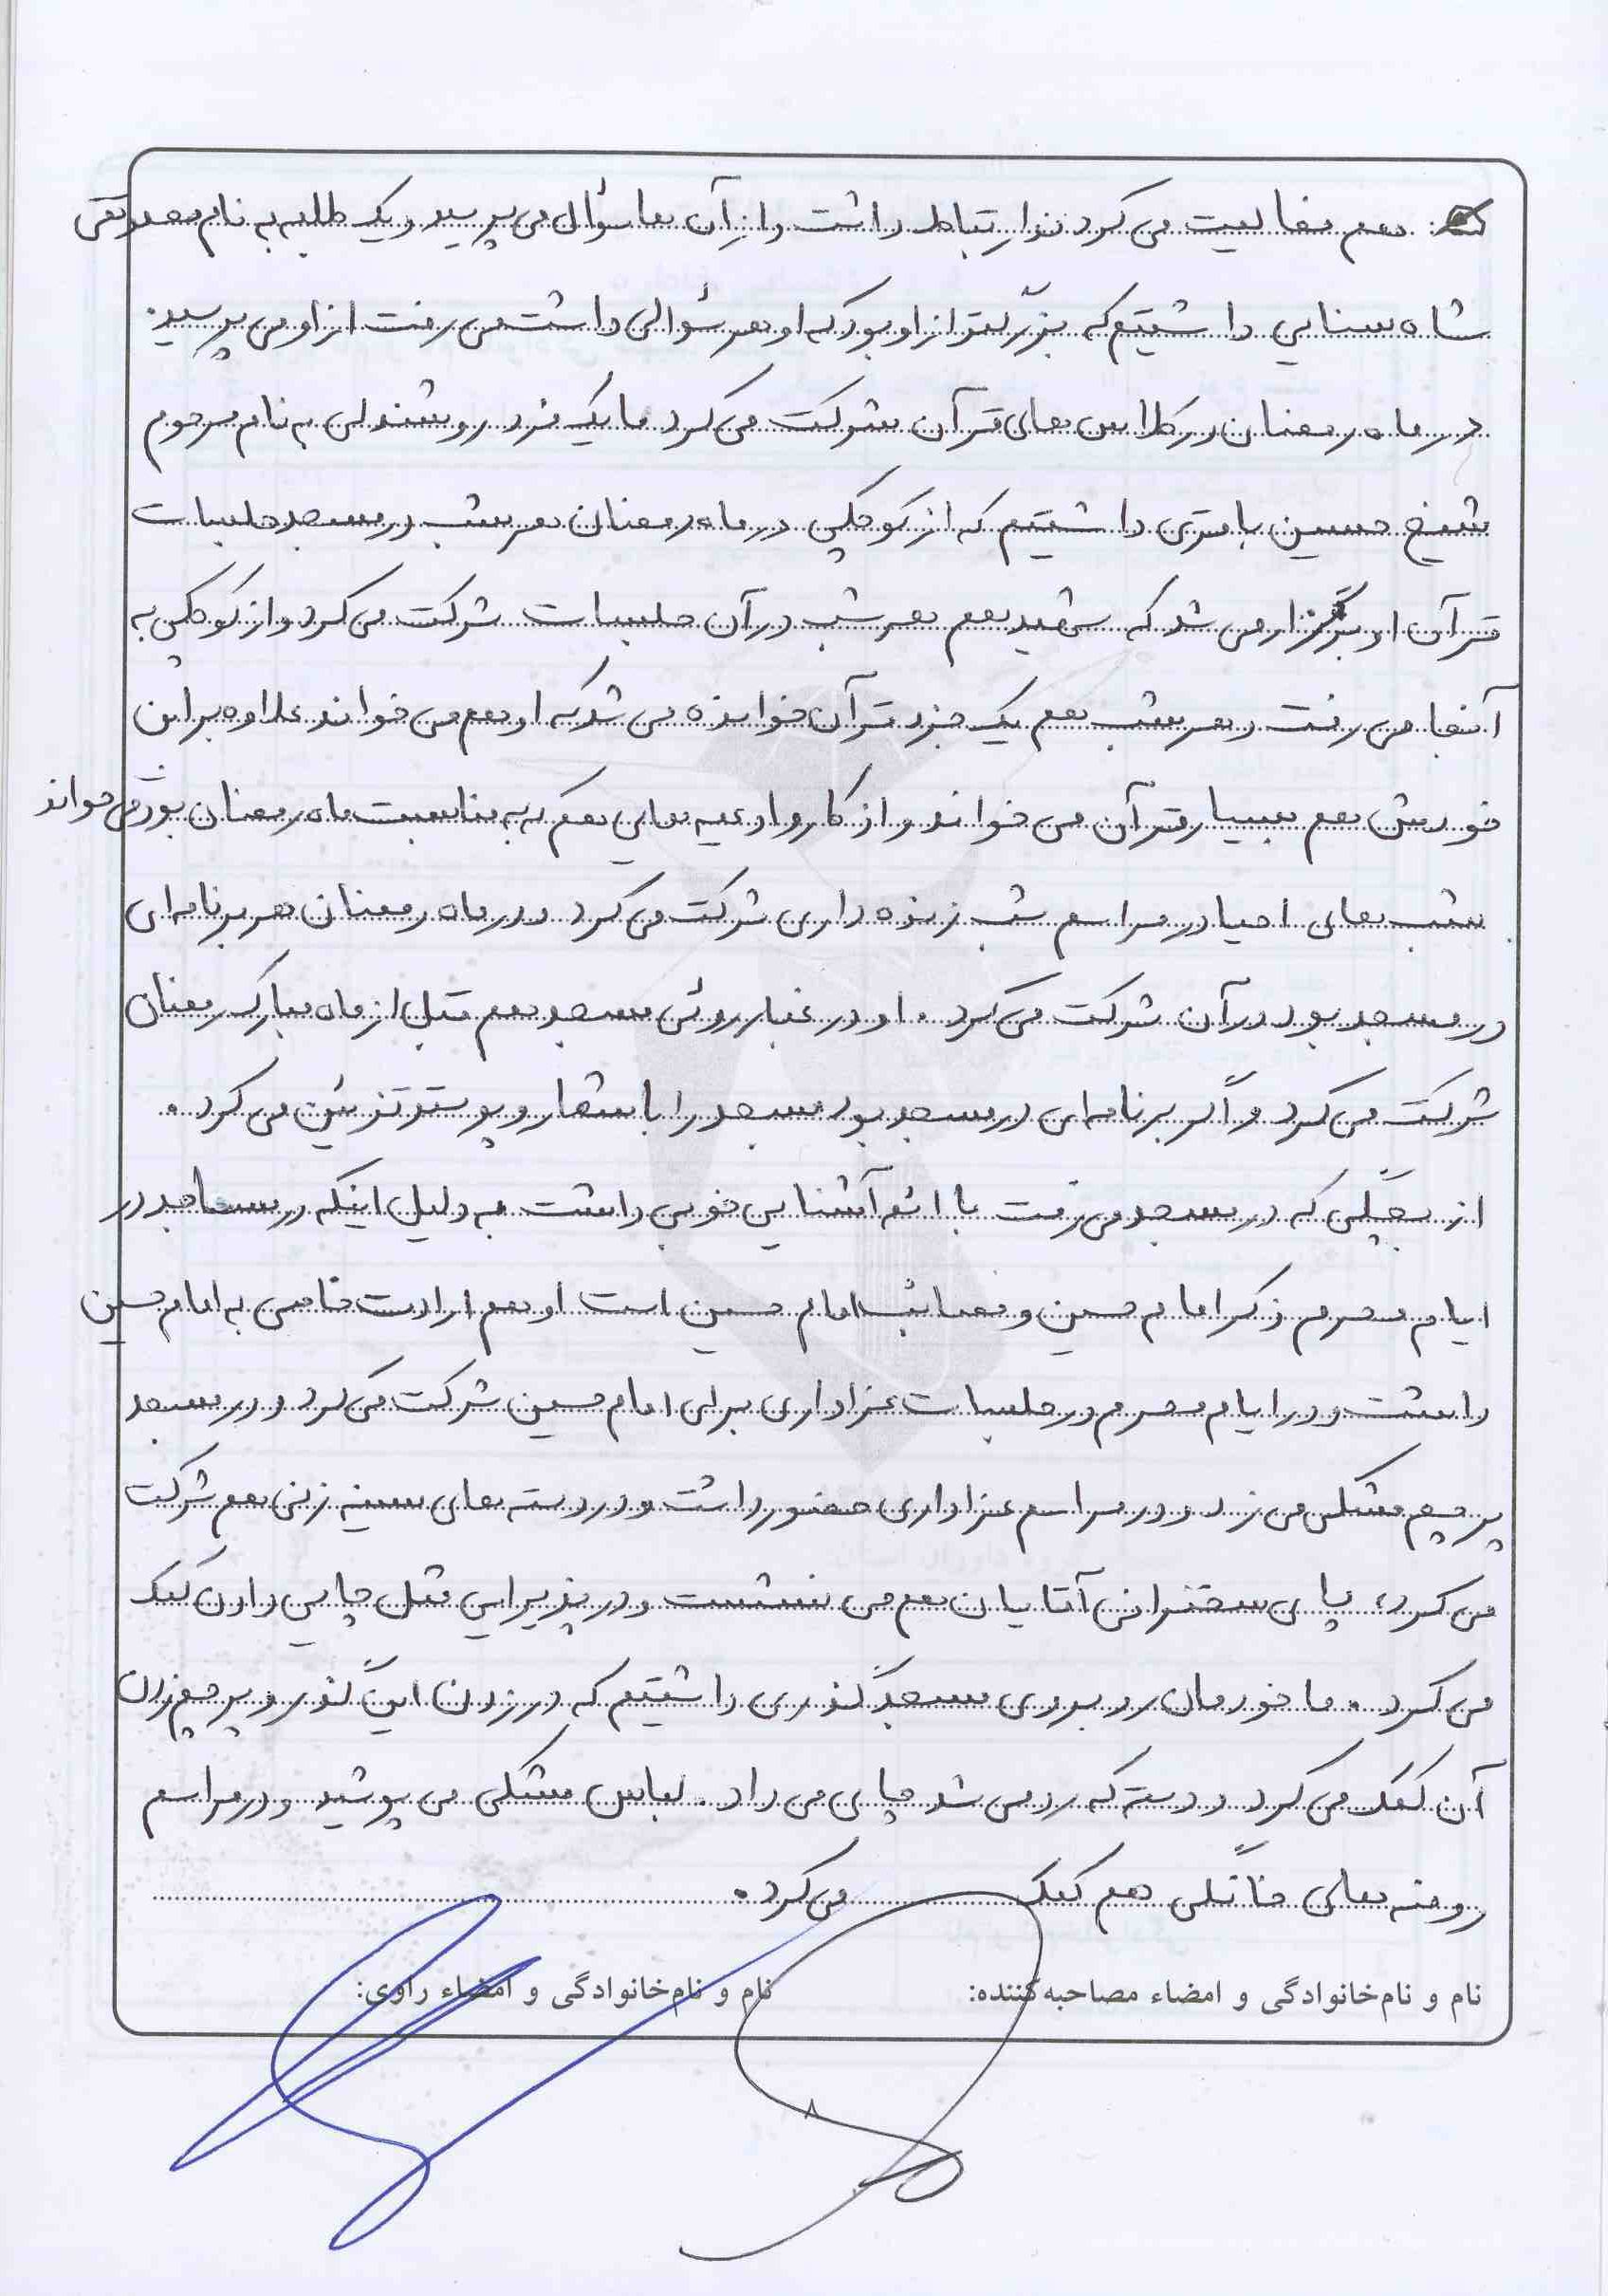 هم فعالیت می کردند ارتباط داشت و از آن ها سؤال می پرسید و یک طلبه به نام محمدتقی
شاه سنایی داشتیم که بزرگتر از او بود که او هر سؤالی داشت می رفت از او می پرسید.
در ماه رمضان در کلاس های قرآن شرکت می کرد ما یک فرد روشندلی به نام مرحوم
شیخ حسین باقری داشتیم که از کوچکی در ماه رمضان هر شب در مسجد جلسات
قرآن او برگزار می شد که شهید هم هر شب در آن جلسات شرکت می کرد و از کوچکی به
آنجا می رفت و هر شب هم یک جزء قرآن خوانده می شد که او هم می خواند علاوه بر این
خودش هم بسیار قرآن می خواند و از کارو ادعیه هایی هم که به مناسبت ماه رمضان بود می خواند
شب های احیا در مراسم شب زنده داری شرکت می کرد و در ماه رمضان هر برنامه ای
در مسجد بود در آن شرکت می کرد. او در غبار روئی مسجد هم قبل از ماه مبارک رمضان
شرکت می کرد و اگر برنامه ای در مسجد بود مسجد را با شعار و پوستر تزئین می کرد.
از بچگی که در مسجد می رفت با ائمه آشنایی خوبی داشت به دلیل اینکه در مساجد در
ایام محرم ذکر امام حسین و مصائب امام حسین است او هم ارادت خاصی به امام حسین
داشت و در ایام محرم در جلسات عزاداری برای امام حسین شرکت می کرد و در مسجد
پرچم مشکی می زد و در مراسم عزاداری حضور داشت و در دسته های سینه زنی هم شرکت
می کرد، پای سخنرانی آقایان هم می نشست و در پذیرایی مثل چایی دادن کمک
می کرد. ما خودمان روبروی مسجد گذری داشتیم که در زدن این گذر و پرچم زدن
آن کمک می کرد و دسته که رد می شد چای می داد. لباس مشکی می پوشید و در مراسم
روضه های خانگی هم کمک می کرد.
نام و نام‌خانوادگی و امضاء مصاحبه‌کننده: نام و نام‌خانوادگی و امضاء راوی:
۸